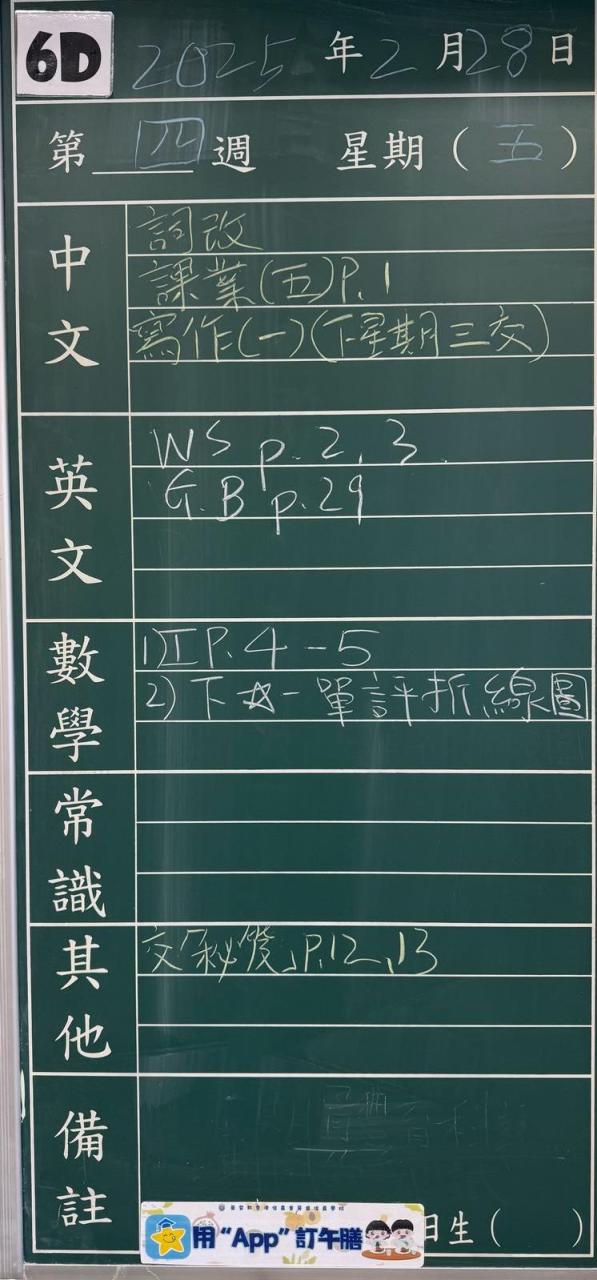 6D 2025年2月28日
第四週 星期(五)
中文
詞改
課業(五)P.1
寫作(一)(下星期三交)
英文
WS p.2,3.
G.B p.29
數學
1)工P.4-5
2)下☆一單評折線圖
常識
其他
交「秘笈」P.12、13
備註
日生( )
用“App”訂午膳